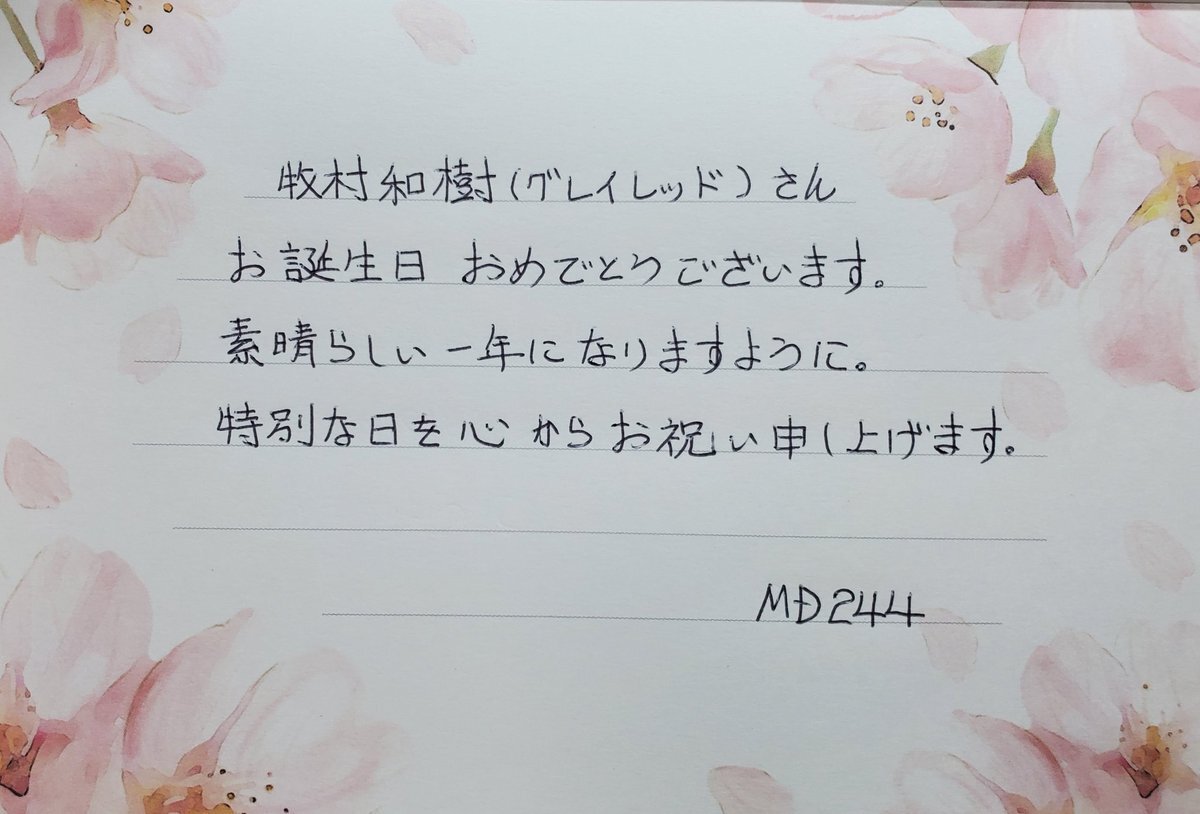 牧村和樹(グレイレッド)さん
お誕生日 おめでとうございます。
素晴らしい一年になりますように。
特別な日を心からお祝い申し上げます。
MD244